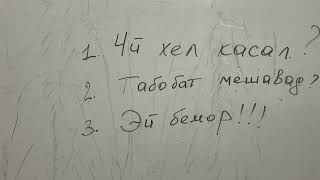 1. Чй хел касал?
2. Табобат мешавад?
3. Эй бемор!!!